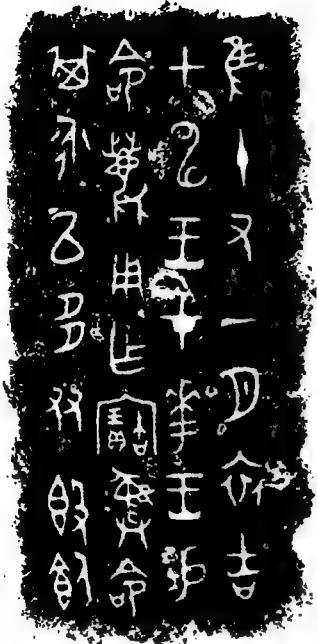 隹十又一月初吉
甲申王才華王易
命鹿用乍寶彝命
其永㠯多友𣪘飤